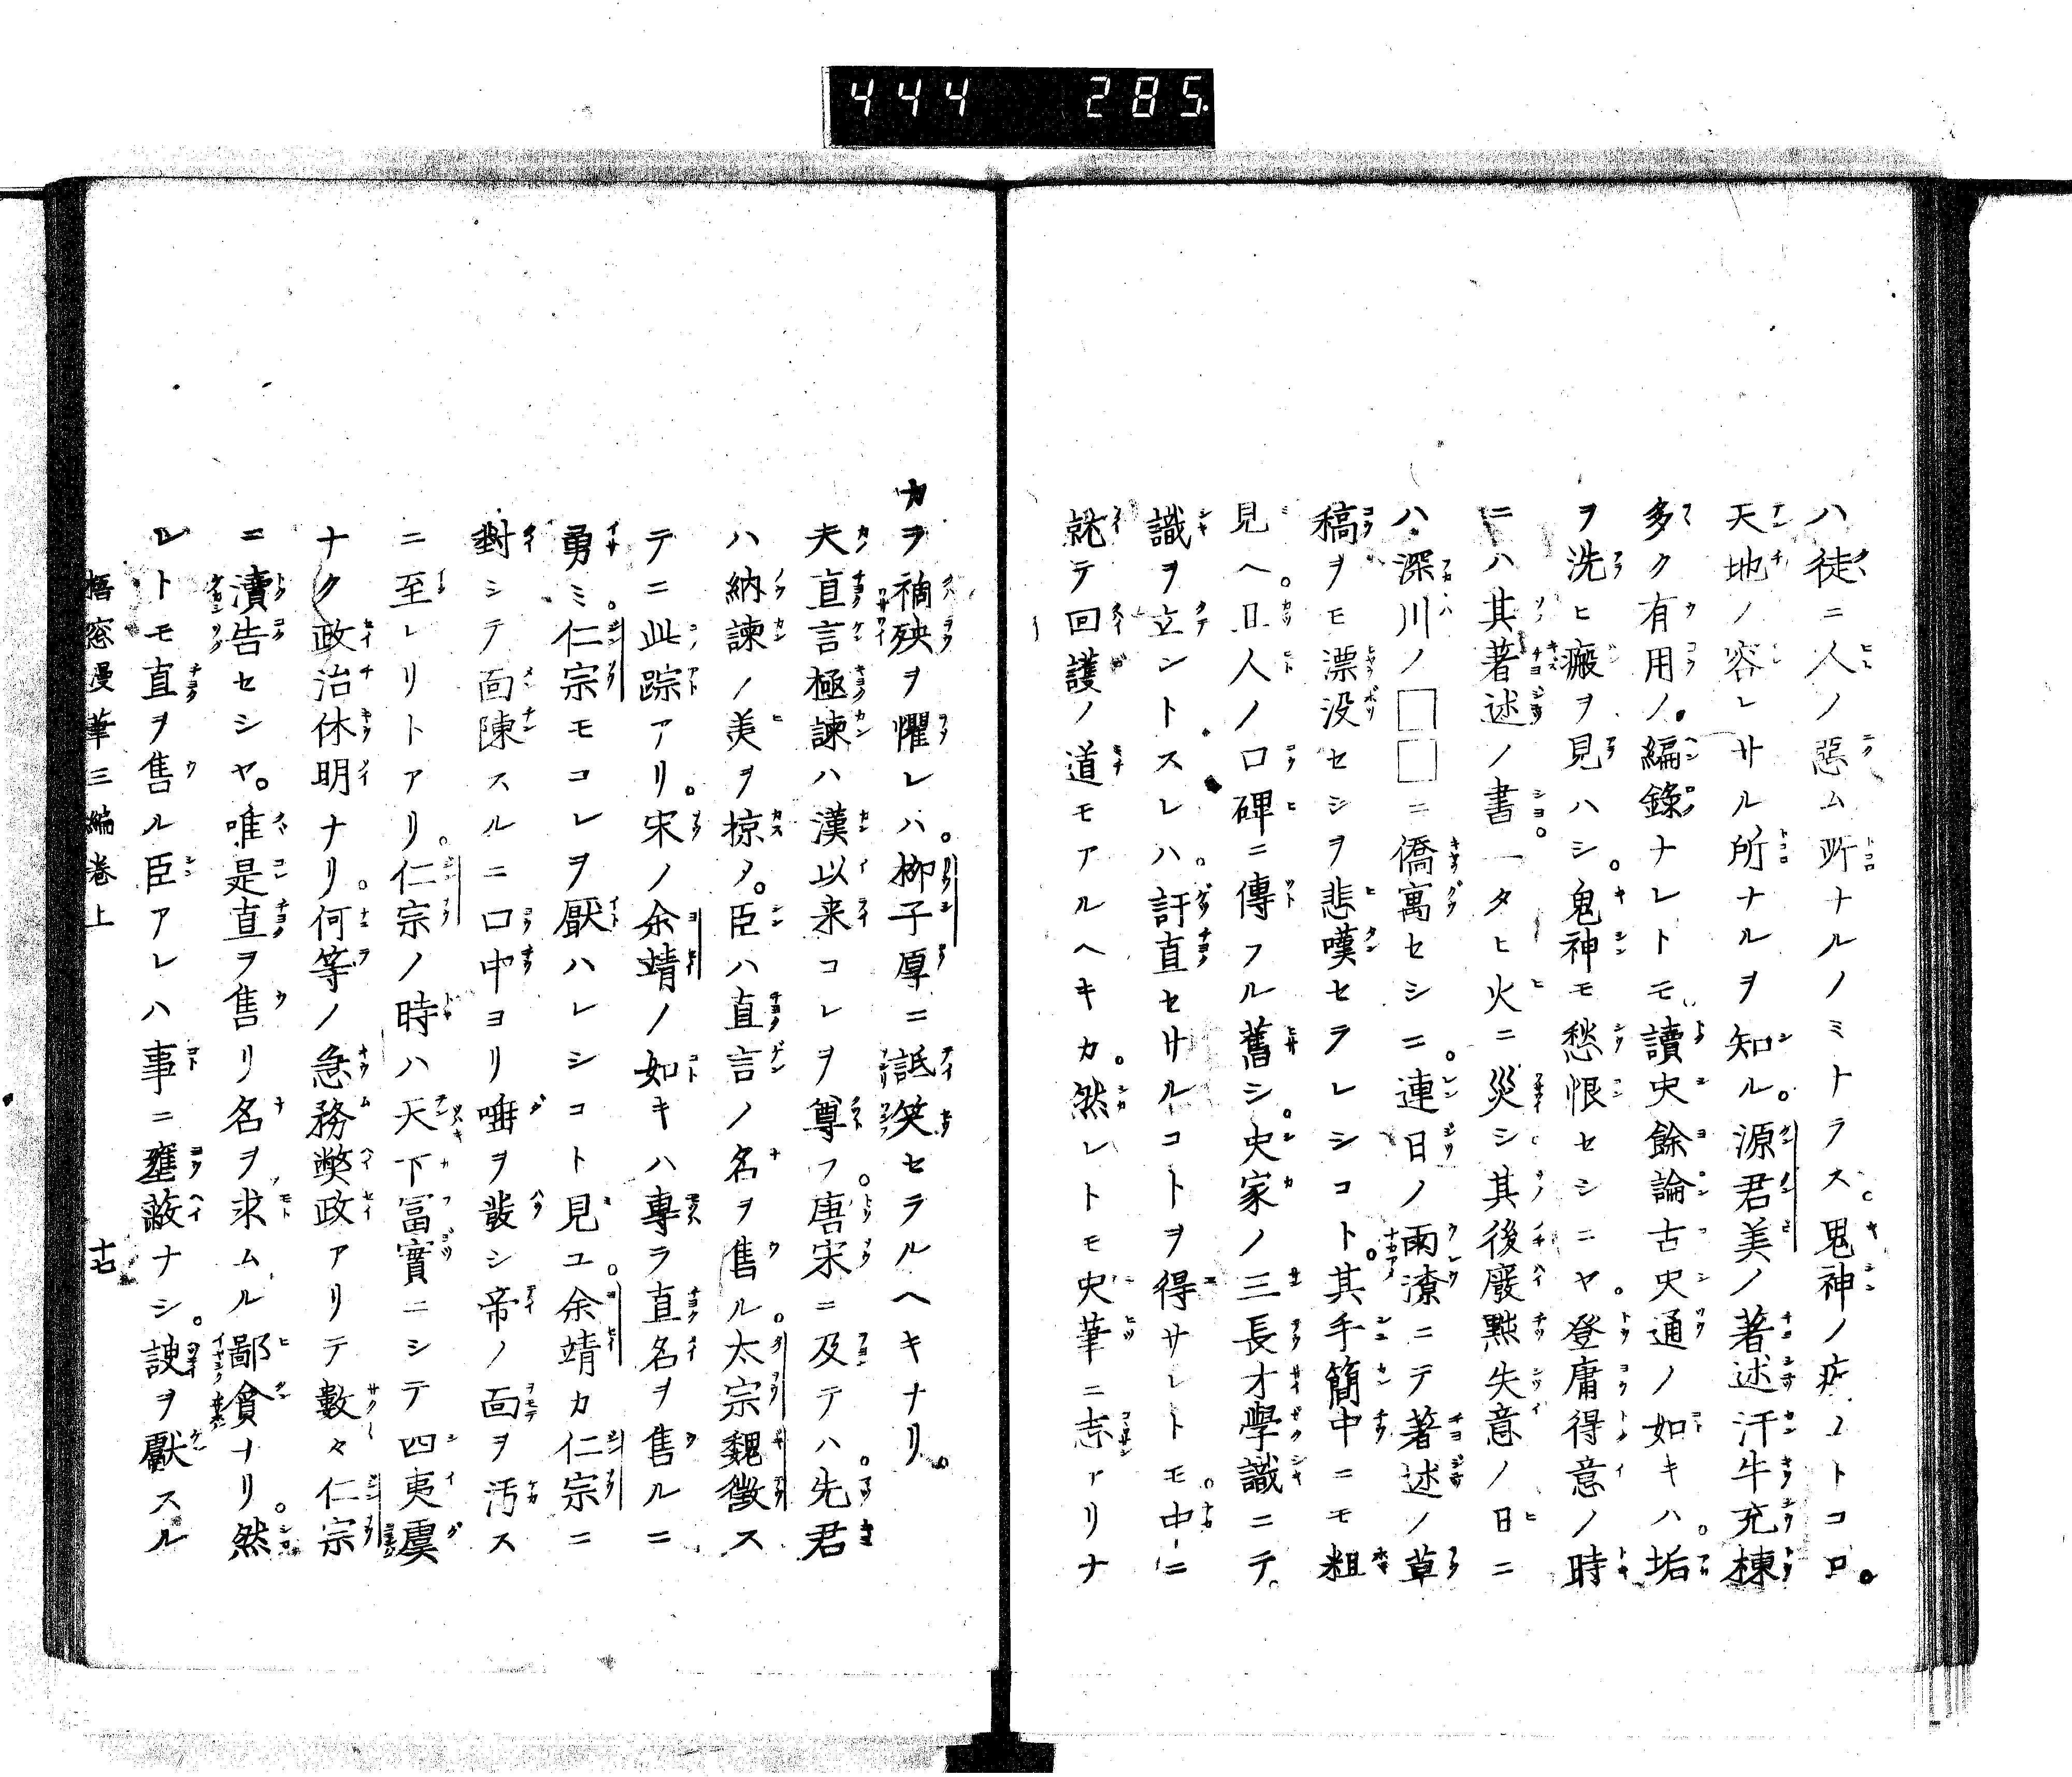 444 285
ハ徒ニ人ノ惡ム所ナルノミトラス。鬼神ノ疾ムトコロ。
天地ノ容レサル所ナルヲ知ル。源君美ノ著述汗牛充棟
多ク有用ノ編錄ナレトモ讀史餘論古史通ノ如キハ。垢
ヲ洗ヒ瘢ヲ見ハシ。鬼神モ愁恨セシニヤ。登庸得意ノ時
ニハ其著述ノ書一タヒ火ニ災シ其後廢黜失意ノ日ニ
ハ深川ノ□□ニ僑寓セシニ。連日ノ雨潦ニテ著述ノ草
稿ヲモ漂没セシヲ悲嘆セラレシコト。其手簡中ニモ粗
見ヘ。且人ノ口碑ニ傳フル舊シ。史家ノ三長才學識ニテ。
識ヲ立ントスレハ。訐直セサルコトヲ得サレトモ。中ニ
就テ回護ノ道モアルヘキカ。然レトモ史筆ニ志アリナ
カヲ禍殃ヲ懼レハ。柳子厚ニ詆笑セラルヘキナリ。
夫直言極諫ハ漢以来コレヲ尊フ。唐宋ニ及テハ。先君
ハ納諫ノ美ヲ掠メ。臣ハ直言ノ名ヲ售ル。太宗魏徵ス
テニ此踪アリ。宋ノ余靖ノ如キハ專ラ直名ヲ售ルニ
勇ミ。仁宗モコレヲ厭ハレシコト見ユ。余靖カ仁宗ニ
對シテ面陳スルニ口中ヨリ唾ヲ發シ帝ノ面ヲ汚ス
ニ至レリトアリ。仁宗ノ時ハ天下冨實ニシテ四夷虞
ナク政治休明ナリ。何等ノ急務獘政アリテ數々仁宗
ニ瀆告セシヤ。唯是直ヲ售リ名ヲ求ムル鄙貪ナリ。然
レトモ直ヲ售ル臣アレハ事ニ壅蔽ナシ。諛ヲ獻スル
梧窓漫筆三編卷上 十七